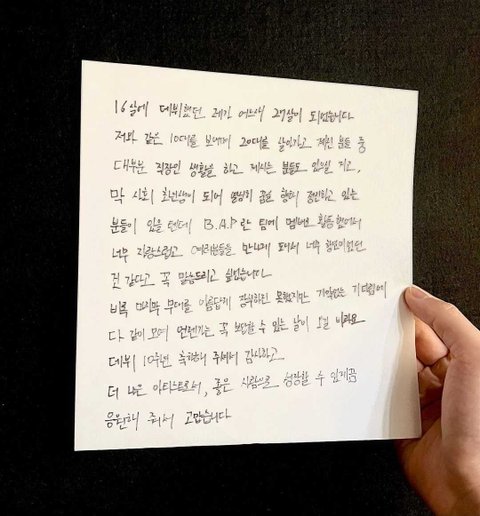 16살에 데뷔했던 제가 어느새 27살이 되었습니다
저와 같은 10대를 보내며 20대를 살아가고 계신 분들 중
대부분 직장인 생활을 하고 계시는 분들도 있을 거고,
막 사회 초년생이 되어 열심히 꿈을 향해 정진하고 있는
분들이 있을 텐데 B.A.P란 팀에 멤버로 활동했어서
너무 자랑스럽고 여러분들을 만나게 돼서 너무 행운이었던
것 같다고 꼭 말씀드리고 싶었습니다.
비록 마지막 무대를 아름답게 장식하진 못했지만 기약없는 기다림에
다 같이 모여 언젠가는 꼭 보답할 수 있는 날이 오길 바라요
데뷔 10주년 축하해 주셔서 감사하고
더 나은 아티스트로서, 좋은 사람으로 성장할 수 있게끔
응원해 줘서 고맙습니다